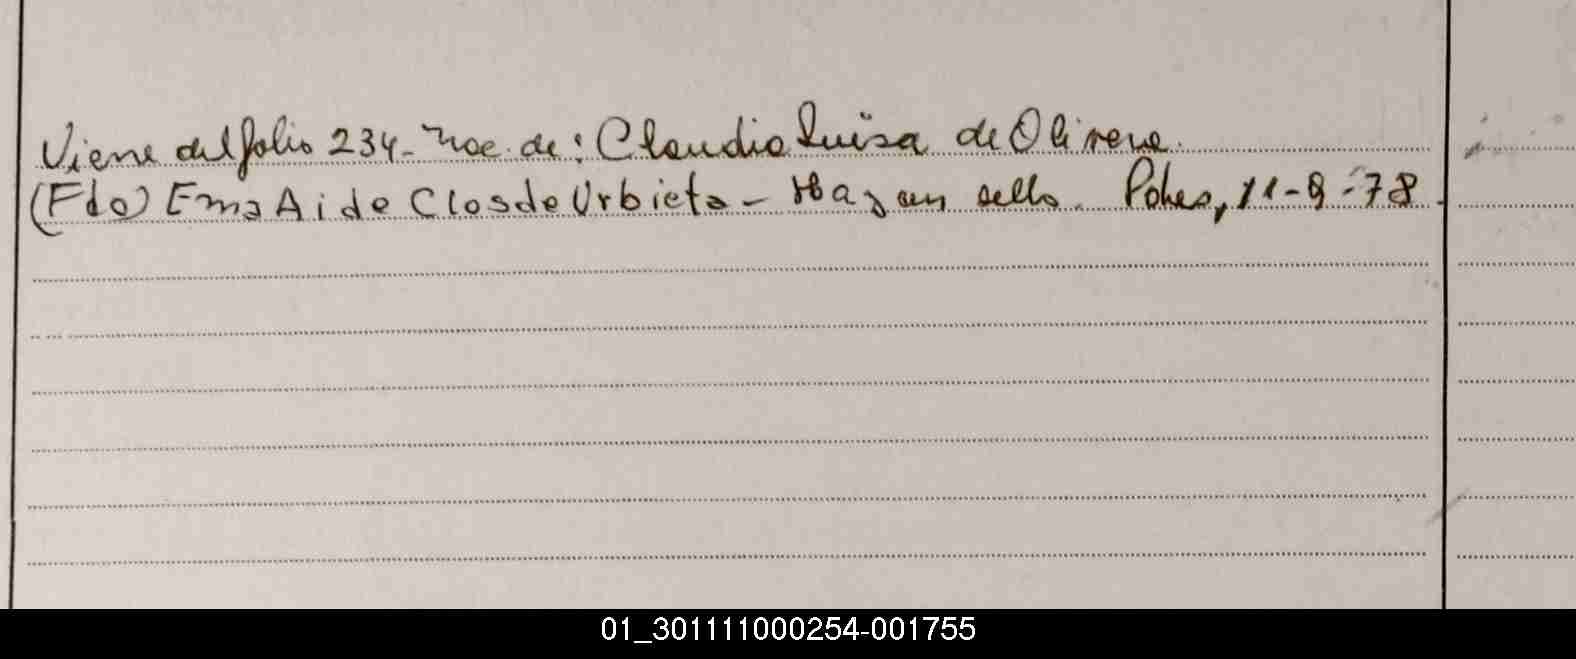 Viene del folio 234- Nac. de: Claudia Luisa de Olivera.
(Fdo) Ema Aide Clos de Urbieta - Hay un sello. Pohes, 11-9-78.
01_301111000254-001755